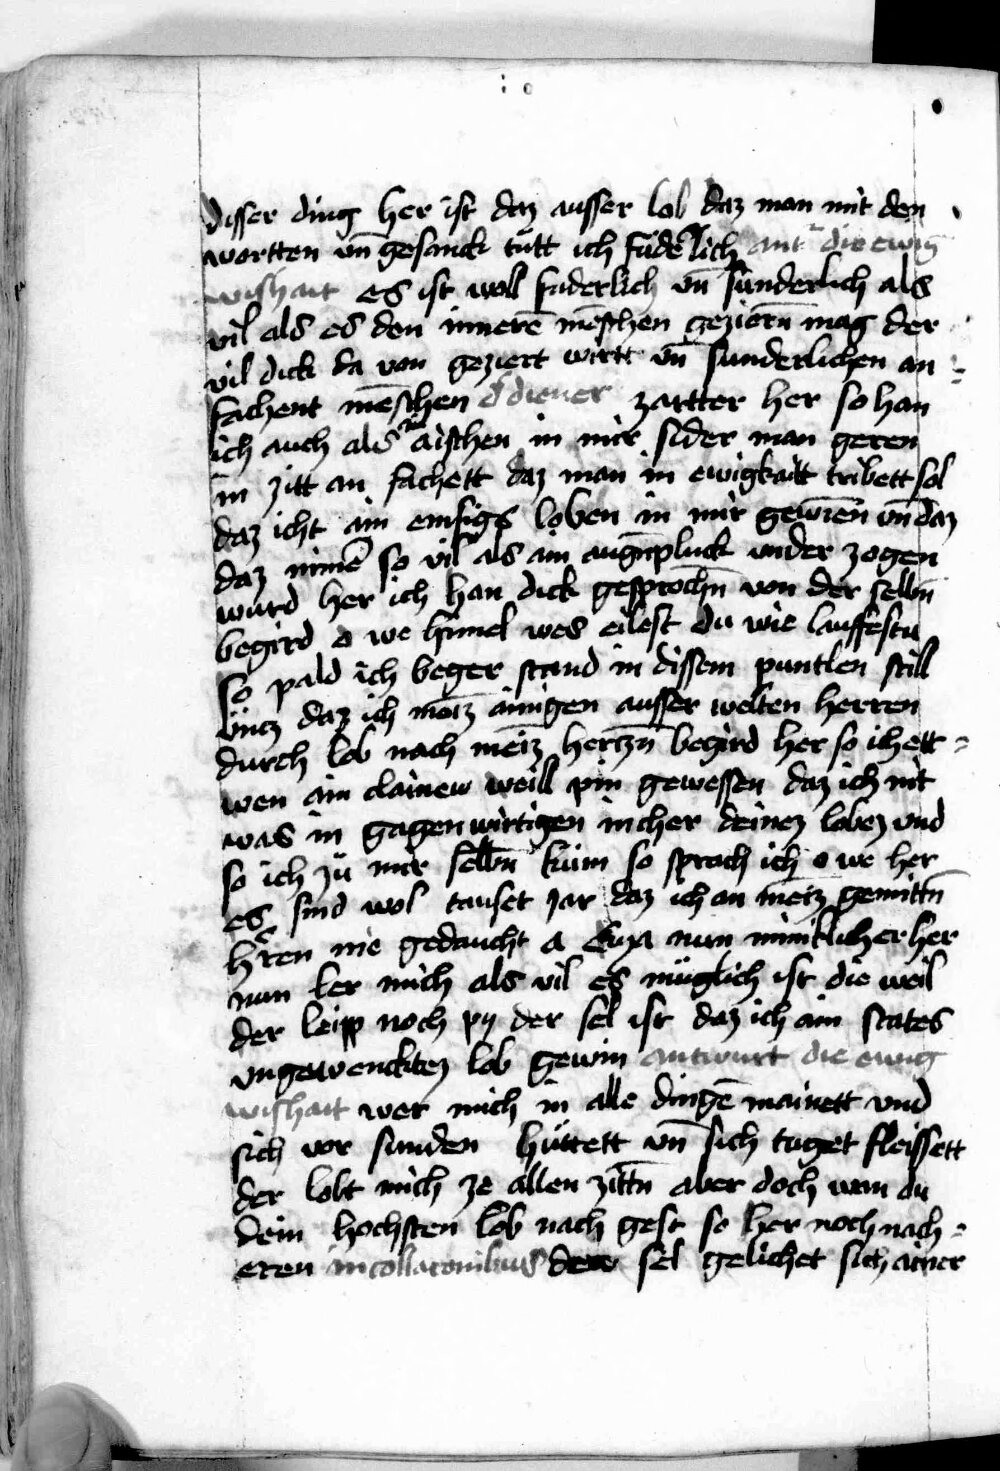 disser ding her ist daz ausser lob daz man mit den
wortten vn̄ gesanck tůtt ich fůderlich ant die ewig
wishait es ist woll fuderlich vn̄ sunderlich als
vil als es den innerē mēschen geziern̄ mag der
vil dick da von geziert wirtt vn̄ sunderlichen an
fachent mēschen d diener zartter her so han
ich auch als aischen in mir sider man geren
in zitt an fachett daz man in ewigkaitt tribett sol
daz icht ain emsigs loben in mir gewiēn vn̄ daz
daz nimer so vil als ain augn̄pluck vnder zogen
wurd her ich han dick gesprochn̄ von der selbn̄
begird o we himel wes eilest du wie lauffestu
so pald ich beger stand in dissem puntlen still
üncz daz ich meīz ainigen ausser welten herren
durch lob nach meīz hertzn̄ begird her so ich ett
wen ain clainew weill pin gewessen daz ich nit
was in gagenwirtigen in cher deinez lobez vnd
so ich zů mir selbn̄ kům so sprach ich o we her
es sind wol tauset jar daz ich an meīz gemittn̄
hren nie gedaucht a Euya nun minklicher her
nun ler mich als vil es müglich ist die weil
der leipp noch py der sel ist daz ich ain states
vngewencktez lob gewin antwurt die ewig
wishait wer mich in alle dingē mainett vnd
sich vor sunden hüttett vn̄ sich tuget fleissett
der lobt mich ze allen zittn̄ aber doch wan du
dem hochsten lob nach gest so her noch nach
eren in collacionibus der sel gelichet sich ainer